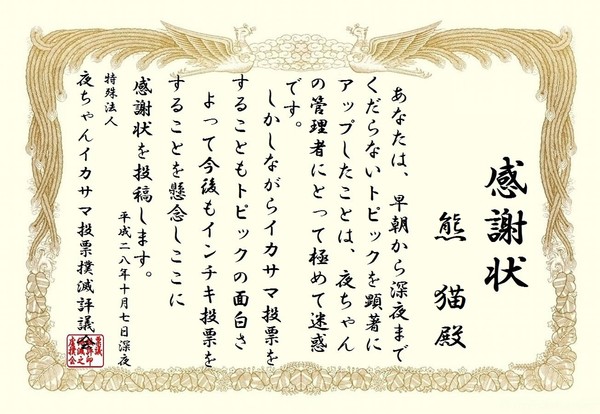 感謝状
熊猫殿
あなたは、早朝から深夜まで
くだらないトピックを顕著に
アップしたことは、夜ちゃん
の管理者にとって極めて迷惑
です。
しかしながらイカサマ投票を
することもトピックの面白さ
よって今後もインチキ投票を
することを懸念しここに
感謝状を投稿します。
平成二八年十月七日深夜
特殊法人
夜ちゃんイカサマ投票撲滅評議会